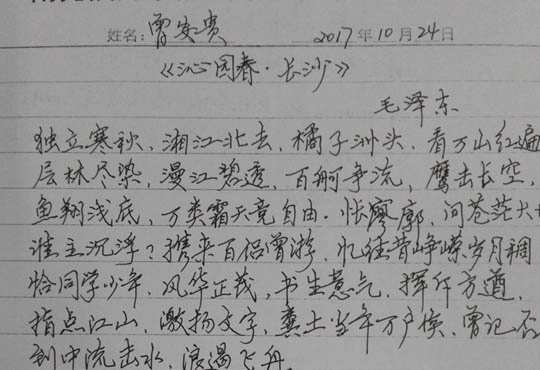 姓名:曾安贵 2017年10月24日
《沁园春·长沙》
毛泽东
独立寒秋,湘江北去,橘子洲头,看万山红遍
层林尽染,漫江碧透,百舸争流,鹰击长空,
鱼翔浅底,万类霜天竞自由.怅廖廓,问苍茫大
谁主沉浮?携来百侣曾游,忆往昔峥嵘岁月稠
恰同学少年,风华正茂,书生意气,挥斥方遒,
指点江山,激扬文字,粪土当年万户侯,曾记否
到中流击水,浪遏飞舟.